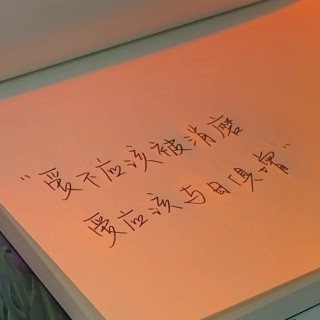 "爱不应该被消磨
爱应该与日俱增"